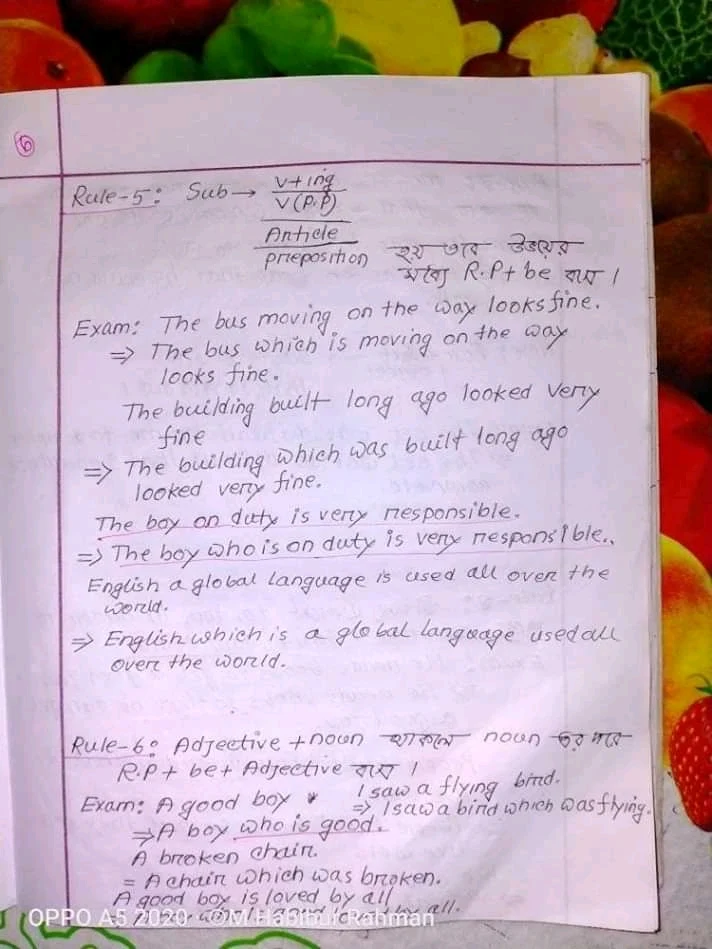 6
Rule-5: Sub → V+ing
V(P.P)
Article
preposition হয় তবে উভয়ের
মধ্যে R.P + be বসে ।
Exam: The bus moving on the way looks fine.
⇒ The bus which is moving on the way
looks fine.
The building built long ago looked very
fine
⇒ The building which was built long ago
looked very fine.
The boy on duty is very responsible.
⇒ The boy who is on duty is very responsible..
English a global language is used all over the
world.
⇒ English which is a global language used all
over the world.
Rule-6: Adjective + noun থাকলে noun এর পরে
R.P + be + Adjective বসে ।
Exam: A good boy
⇒ A boy who is good.
I saw a flying bird.
⇒ I saw a bird which was flying.
A broken chair.
= A chair which was broken.
A good boy is loved by all
by all.
OPPO A5 2020 ©M Habibur Rahman